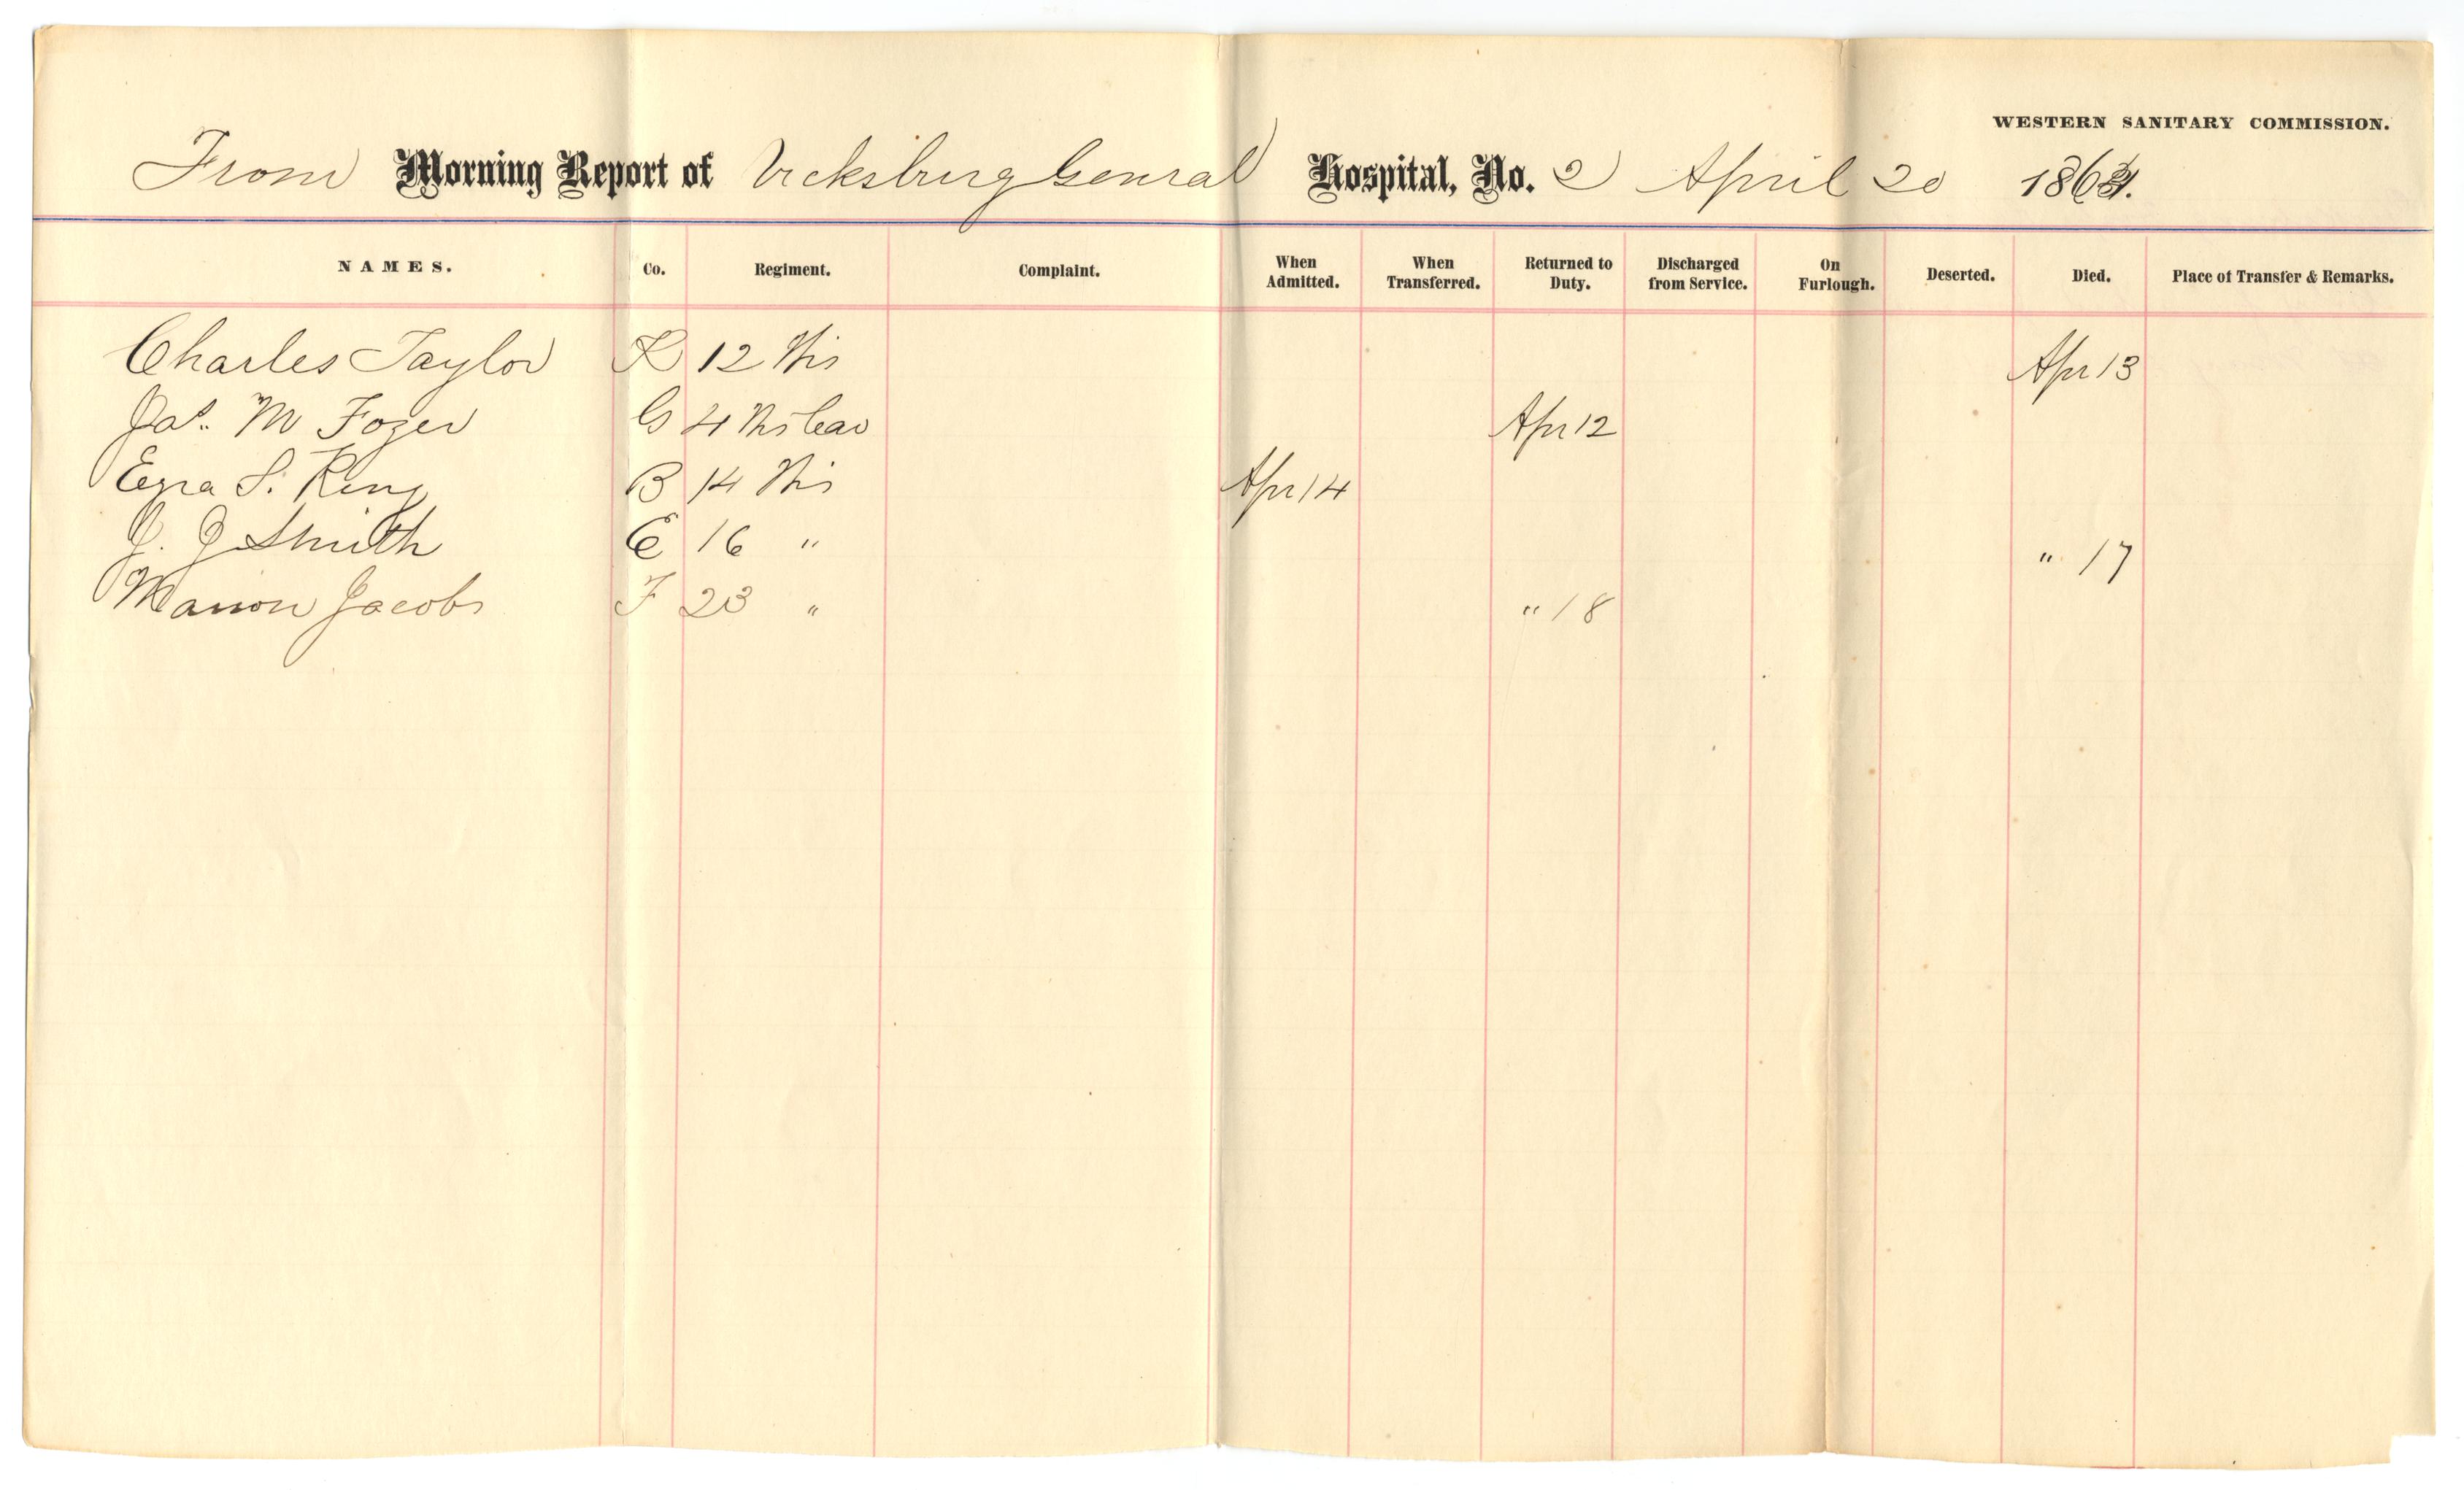 WESTERN SANITARY COMMISSION.
From Morning Report of Vicksburg General Hospital, No. 2 April 20 1864.
NAMES. Co. Regiment. Complaint. When Admitted. When Transferred. Returned to Duty. Discharged from Service. On Furlough. Deserted. Died. Place of Transfer & Remarks.
Charles Taylor K 12 Wis Apr 13
Jas. M Fozer G 4 Wis Cav Apr 12
Ezra S. King B 14 Wis Apr 14
J. J Smith E 16 " " 17
Marion Jacobs F 23 " " 18